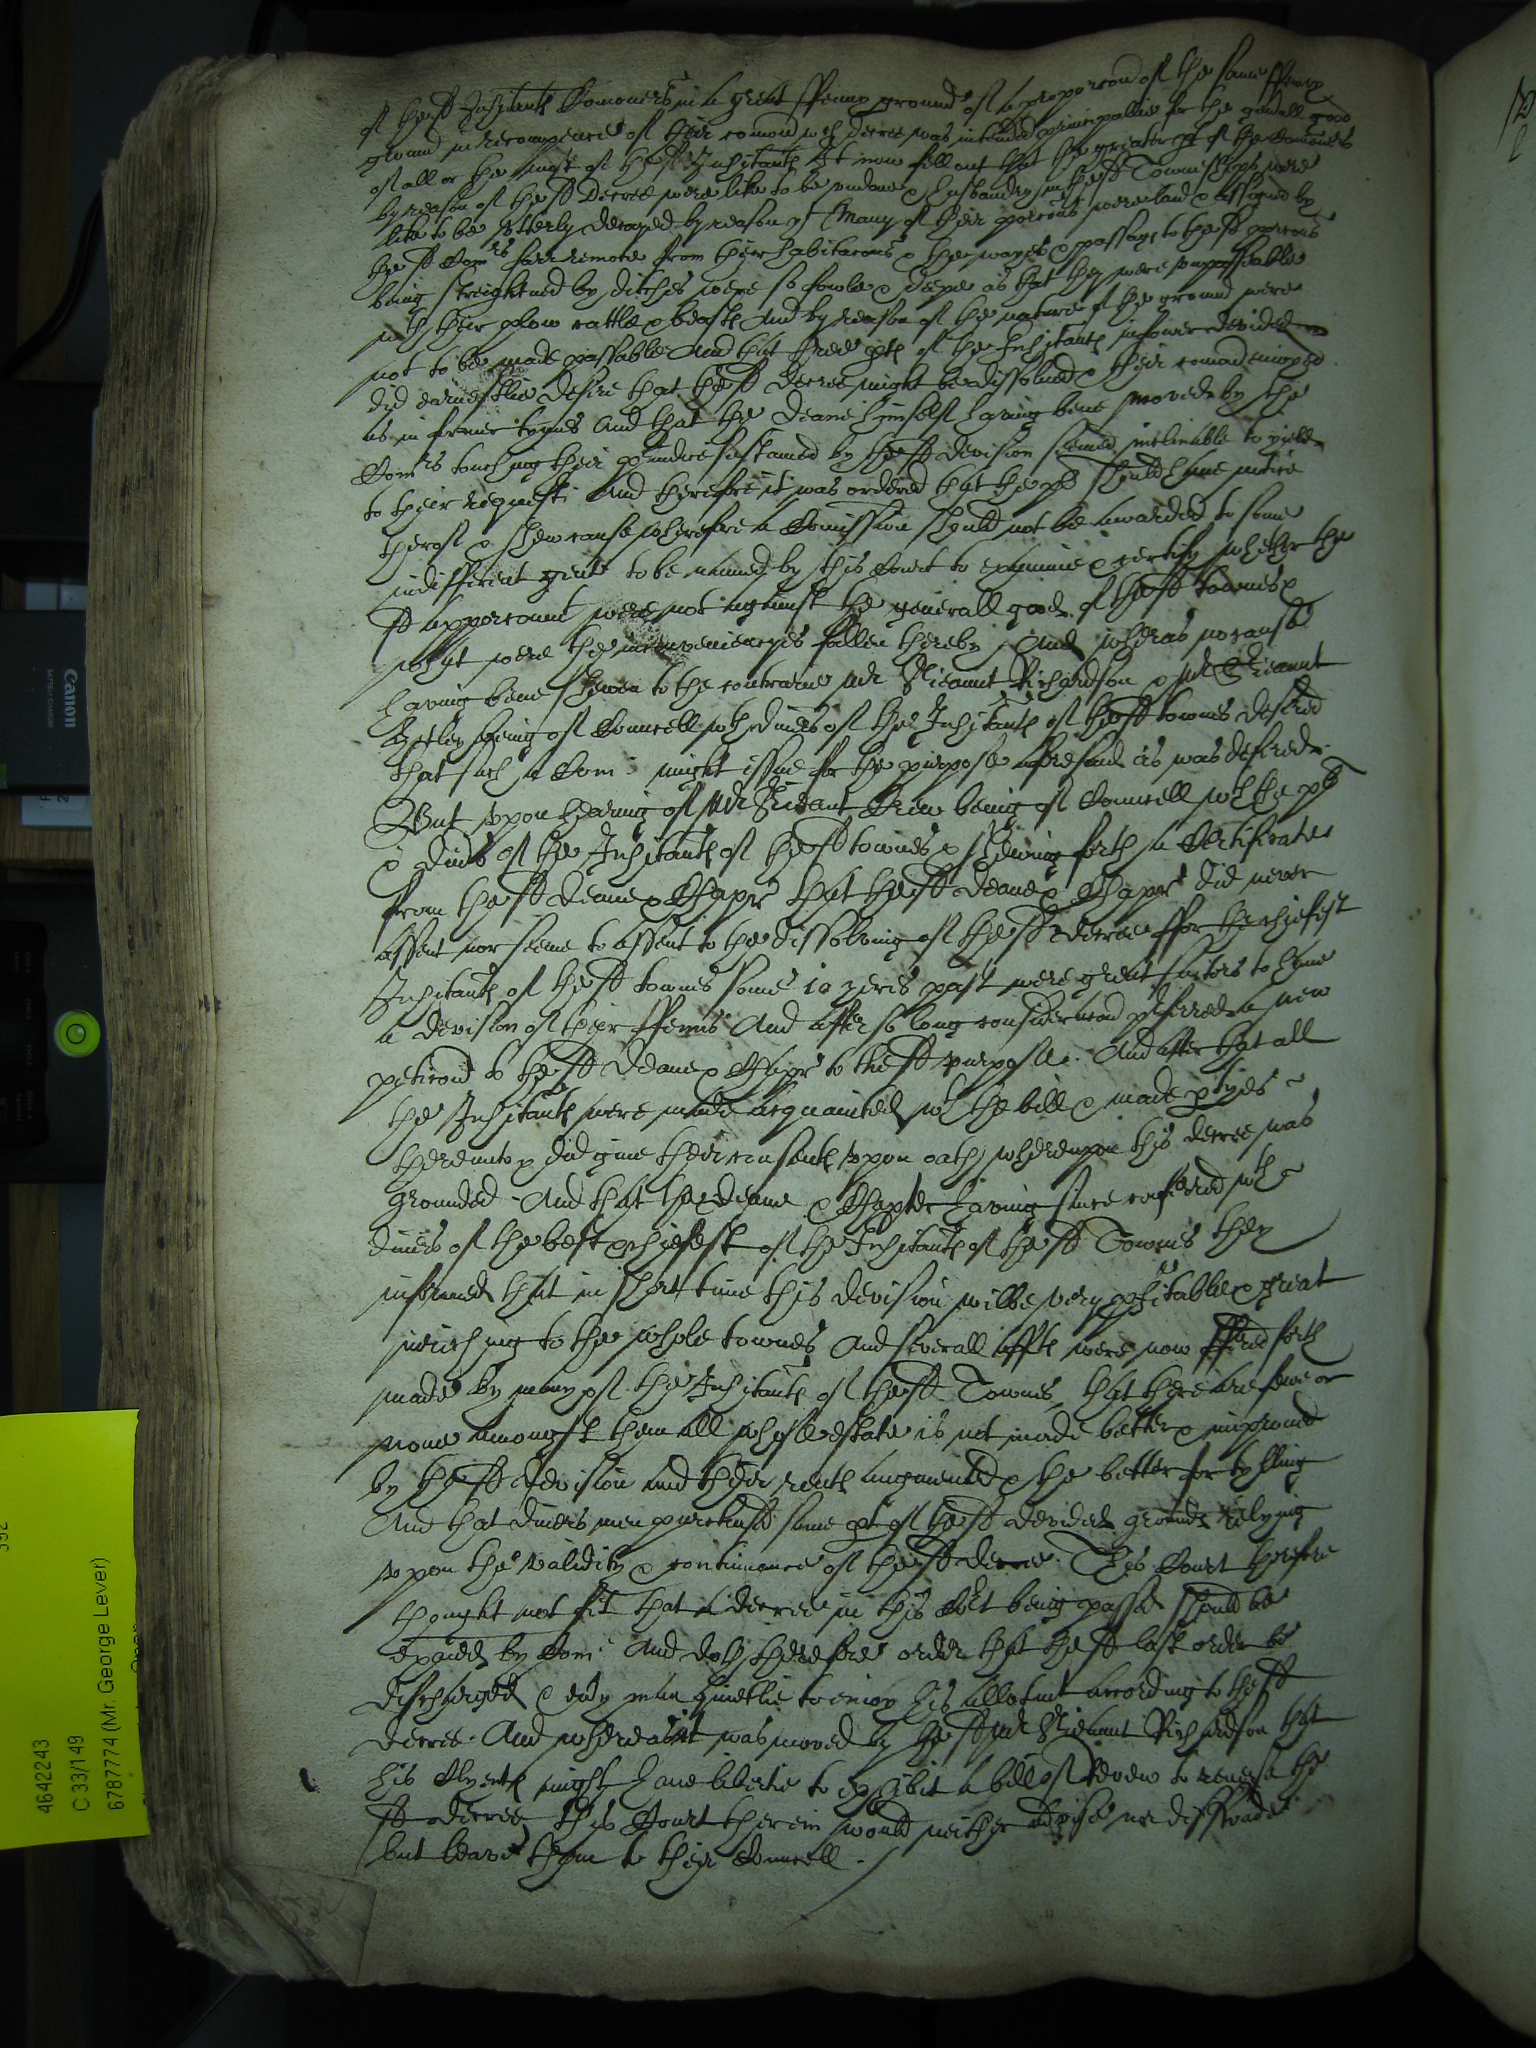 of the sd Inhitants Comoners in a great ffenny ground of a proporcon of the same ffenny
ground in recompence of their comon wch decree was intended principallie for the generall good
of all or the most of the sd Inhitants It now fell out that the greater pt of the Comoners
by reason of the sd Decree were like to be undone & husbandry in the sd Towneshipps were
like to be utterly decayed by reason yt Many of their porcons were land & assigned by
the sd Comrs farr remote from their habitacons & the wayes & passages to the sd porcons
being streightned by ditches were so fowle & deepe as that they were unpassable
wth their plow cattle & beasts And by reason of the nature of the ground were
not to be made passable And that three pts of the Inhitants in fower devided
did earnestlie desire that the sd decree might be dissolved & their comon enioyed
as in former tymes And that the deane himself having bene moved by the
Comrs touching their p'iudice sustained by the sd devision seemed inclinable to yield
to their request And therefore it was ordered that the pls should have notice
therof & shew cause wherefore a Comission should not be awarded to some
indifferent gents to be named by this Court to examine & certify whether the
sd apporconmt were not against the generall good of the sd townes &
what were the inconveniencyes fallen thereby And wheras no cause
having bene shewen to the contrarie Mr Serieant Richardson & Mr Serieant
being of Councell wth divers of the Inhitants of the sd townes desired
that such a Com: might issue for the purpose aforesaid as was desired
But upon hearing of Mr Serieant Crew being of Councell wth the pls
& divers of the Inhitants of the sd townes & shewing forth a Certificate
from the sd deane & Chapr that the sd deane & Chapr did never
assent nor seeme to assent to the dissolving of the sd decree ffor the chiefest
Inhitants of the sd townes some 10 yeres past were great suitors to have
a devision of their ffenns And after so long consideracon p'ferred a new
peticon to the sd deane & Chapr to the sd purpose. And after that all
the Inhitants were made acquainted wth the bill & made p'tyes
thereunto & did give their consents upon oath, whereupon this decree was
grounded And that the deane & Chapter having since conferred wth
divers of the best & chiefest of the Inhitants of the sd Townes they
informed that in short time this devision wilbe very p'fitable & great
inriching to the whole townes And severall affts were now offered forth
made by many of the Inhitants of the sd Townes, that there are fewe or
none amongst them all whose estate is not made better & improved
by the sd devision and their rents augmented & the better for tylling
And that divers men purchased some pt of the sd devided grounds relying
upon the validity & continuance of the sd decree. This Court therefore
thought not fit that a decree in this Cort being passed should be
exaied by Com: And doth therefore order that the sd last order be
discharged & every man quietlie to enioy his allotmt according to the sd
decree. And whereas it was moved by the sd Mr Serieant Richardson that
his Clyents might have libertie to exhibit a bill of Review to reverse the
sd decree this Court therein would neither advise nor disswade
but leave them to their Councell.
Canon
4642243
C 33/149
6787774 (Mr. George Lever)